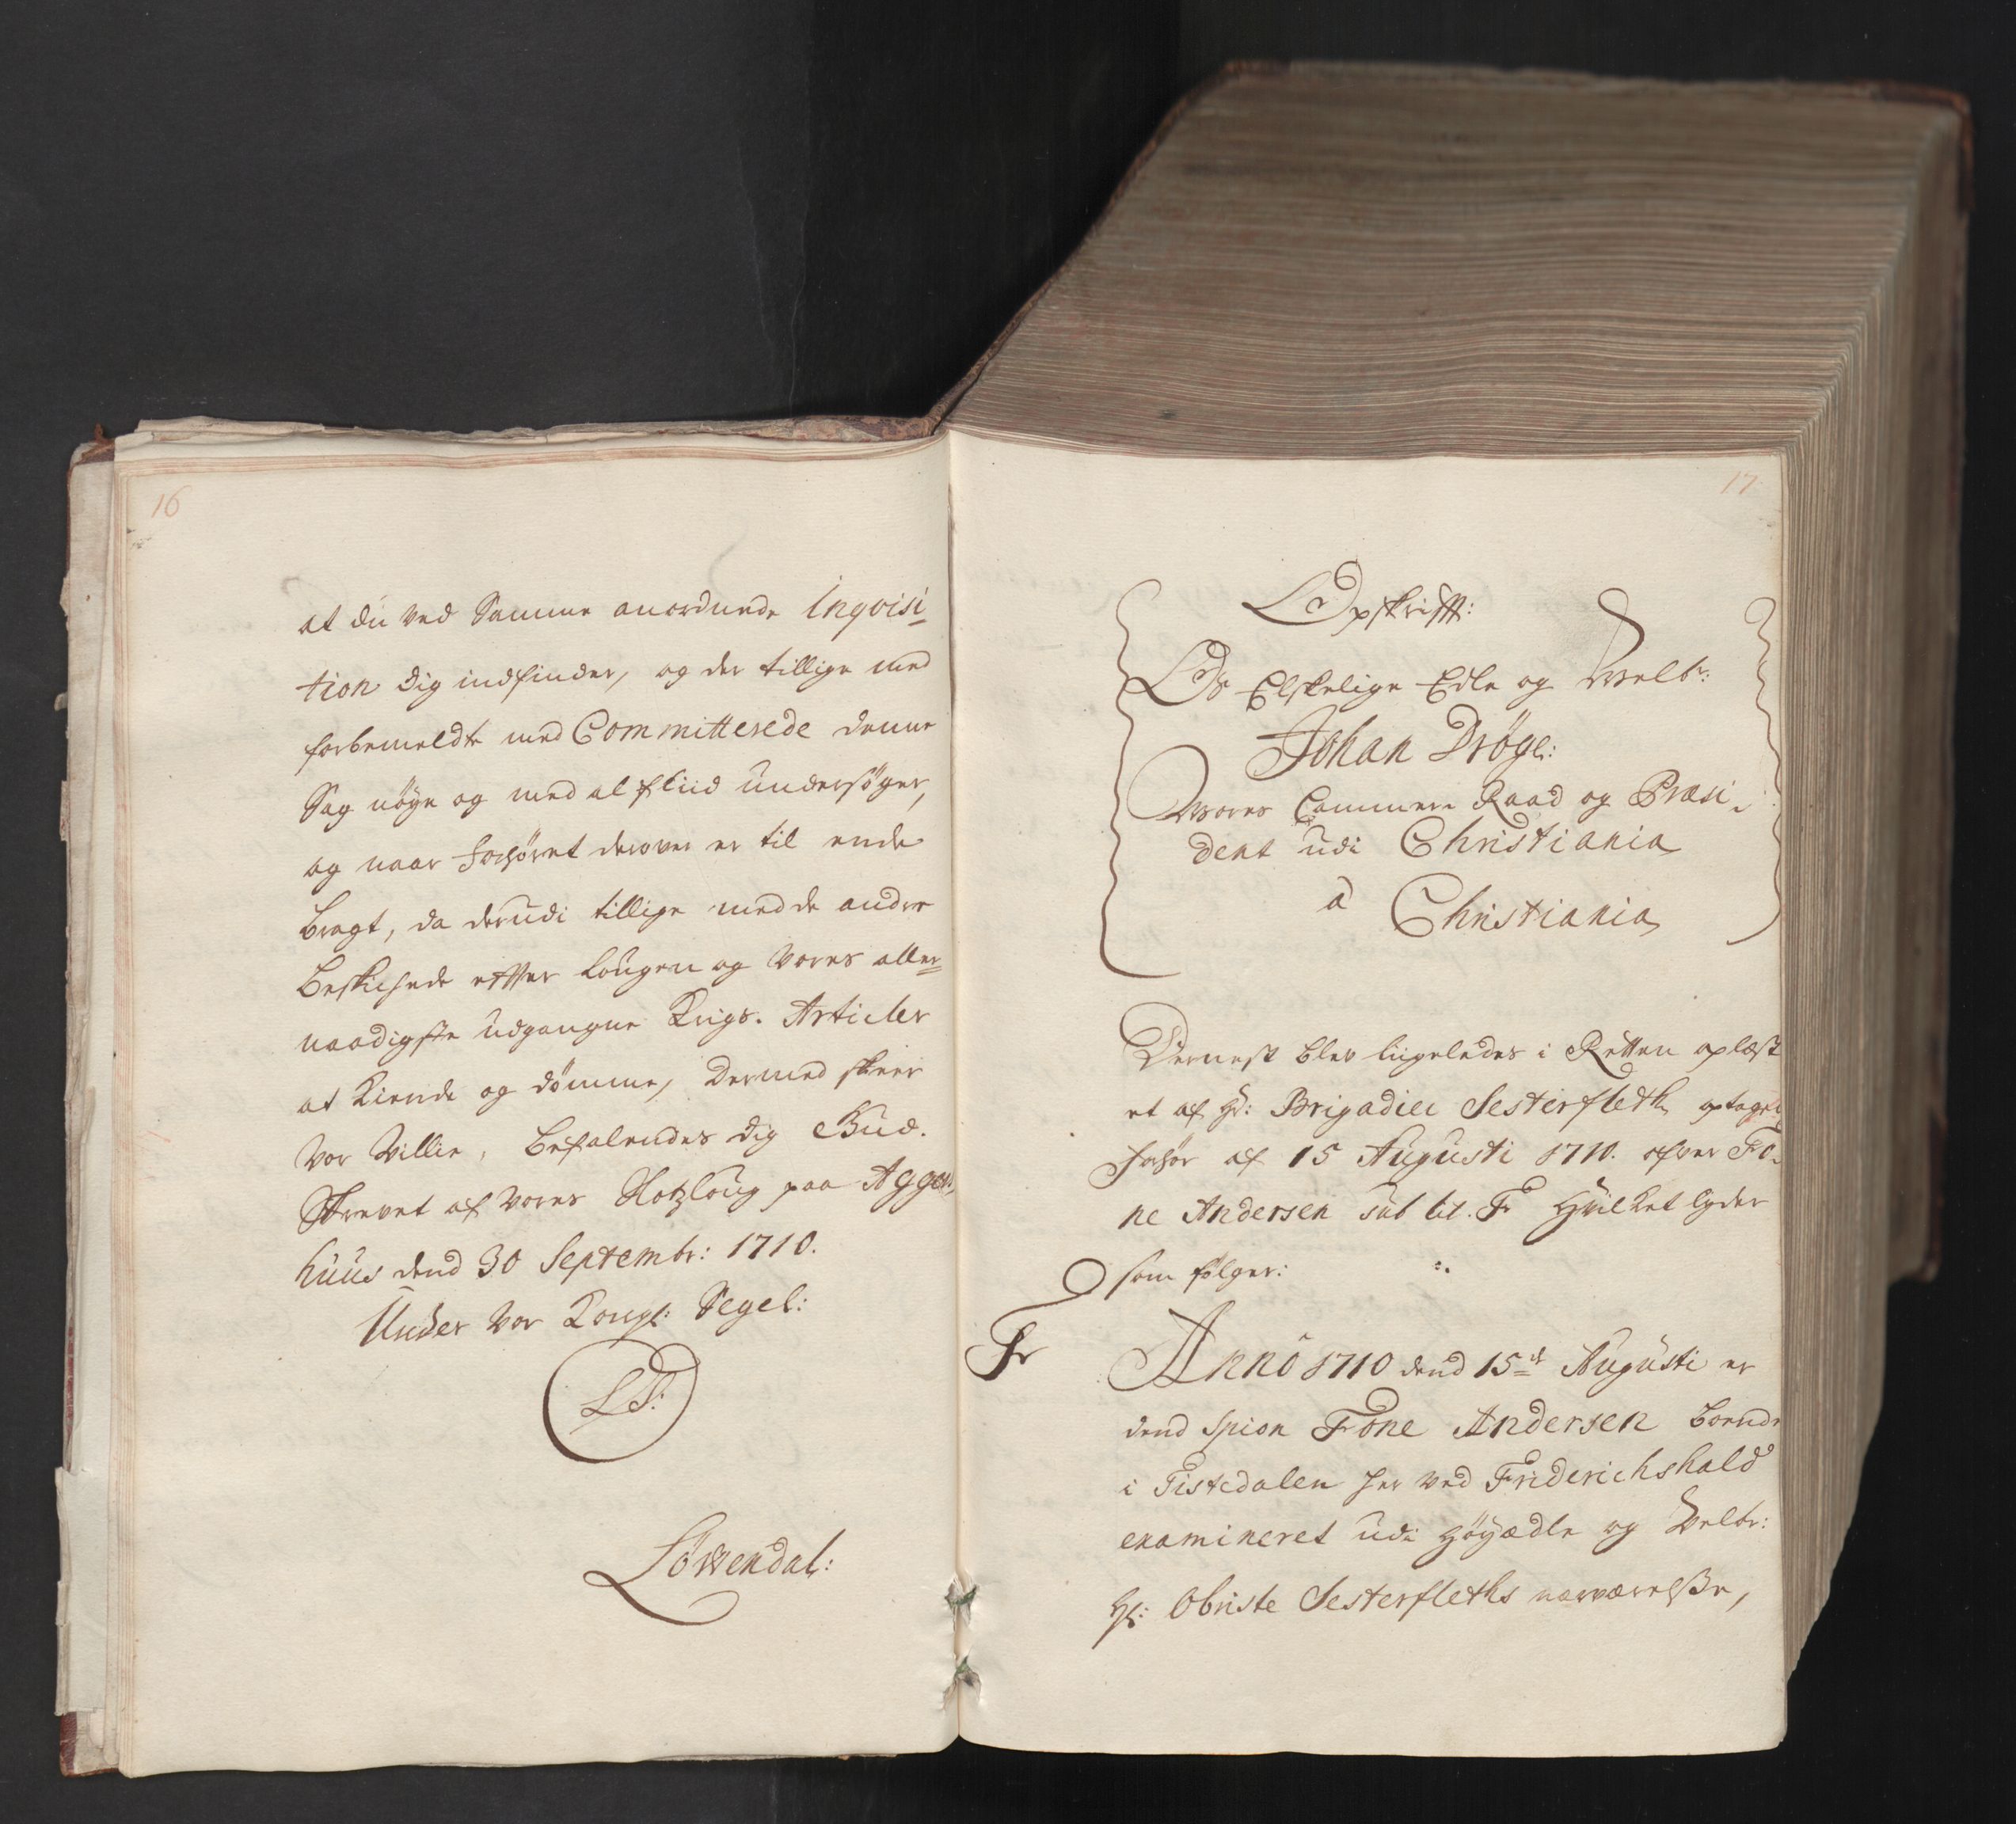 16
at du ved Samme anordnede Inqvisi-
tion dig indfinder, og der tillige med
forbemeldte med Committerede denne
Sag nöye og med al fliid undersöger,
og naar forhöret derover er til ende
bragt, da derudi tillige med de andre
beskichede effter Lougen og Vores aller-
naadigste udgangne Krigs. Articler
at Kiende og dömme, dermed skeer
Vor Villie, befalendes dig Gud.
Skrevet af Vores Slotzloug paa Agger-
huus dend 30 Septembr: 1710.
Under Vor Kongl: Segel:
LS:
Löwendal:
17
Opskrifft:
Os Elskelige Edle og Welbr:
Johan Dröge:
Wores Cammer Raad og Præsi-
dent udi Christiania
a Christiania
Dernest blev ligeledes i Retten oplæst
et af Hr: Brigadier Sesterfleth optaget
forhör af 15 Augusti 1710. ofver To-
ne Andersen sub lit. F Hvilket lyder
som fölger:
F
Anno 1710 dend 15de Augusti er
dend Spion Tone Andersen boende
i Tistedalen her ved Friderichshald
examineret udi Höyædle og Velbr:
Hr: Obriste Sesterfleths nærværelße,